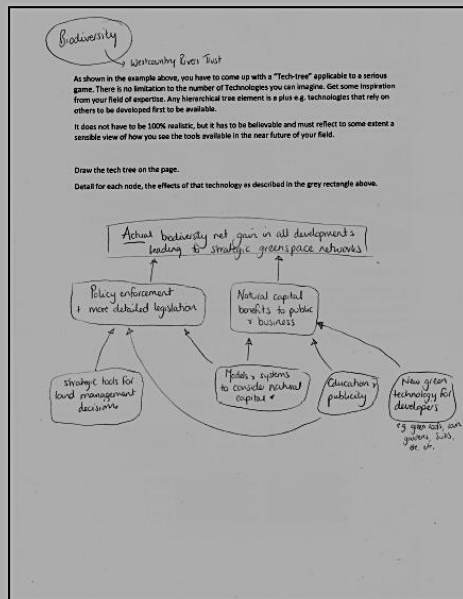 Biodiversity
Westcountry Rivers Trust
As shown in the example above, you have to come up with a "Tech-tree" applicable to a serious
game. There is no limitation to the number of Technologies you can imagine. Get some inspiration
from your field of expertise. Any hierarchical tree element is a plus e.g. technologies that rely on
others to be developed first to be available.
It does not have to be 100% realistic, but it has to be believable and must reflect to some extent a
sensible view of how you see the tools available in the near future of your field.
Draw the tech tree on the page.
Detail for each node, the effects of that technology as described in the grey rectangle above.
Actual biodiversity net gain in all developments
leading to strategic greenspace networks
Policy enforcement
+ more detailed legislation
Natural capital
benefits to public
& business
Strategic tools for
land management
decisions
Models & systems
to consider natural
capital
Education &
publicity
New green
technology for
developers
e.g. green roofs,
gardens, SuDS,
etc. etc.